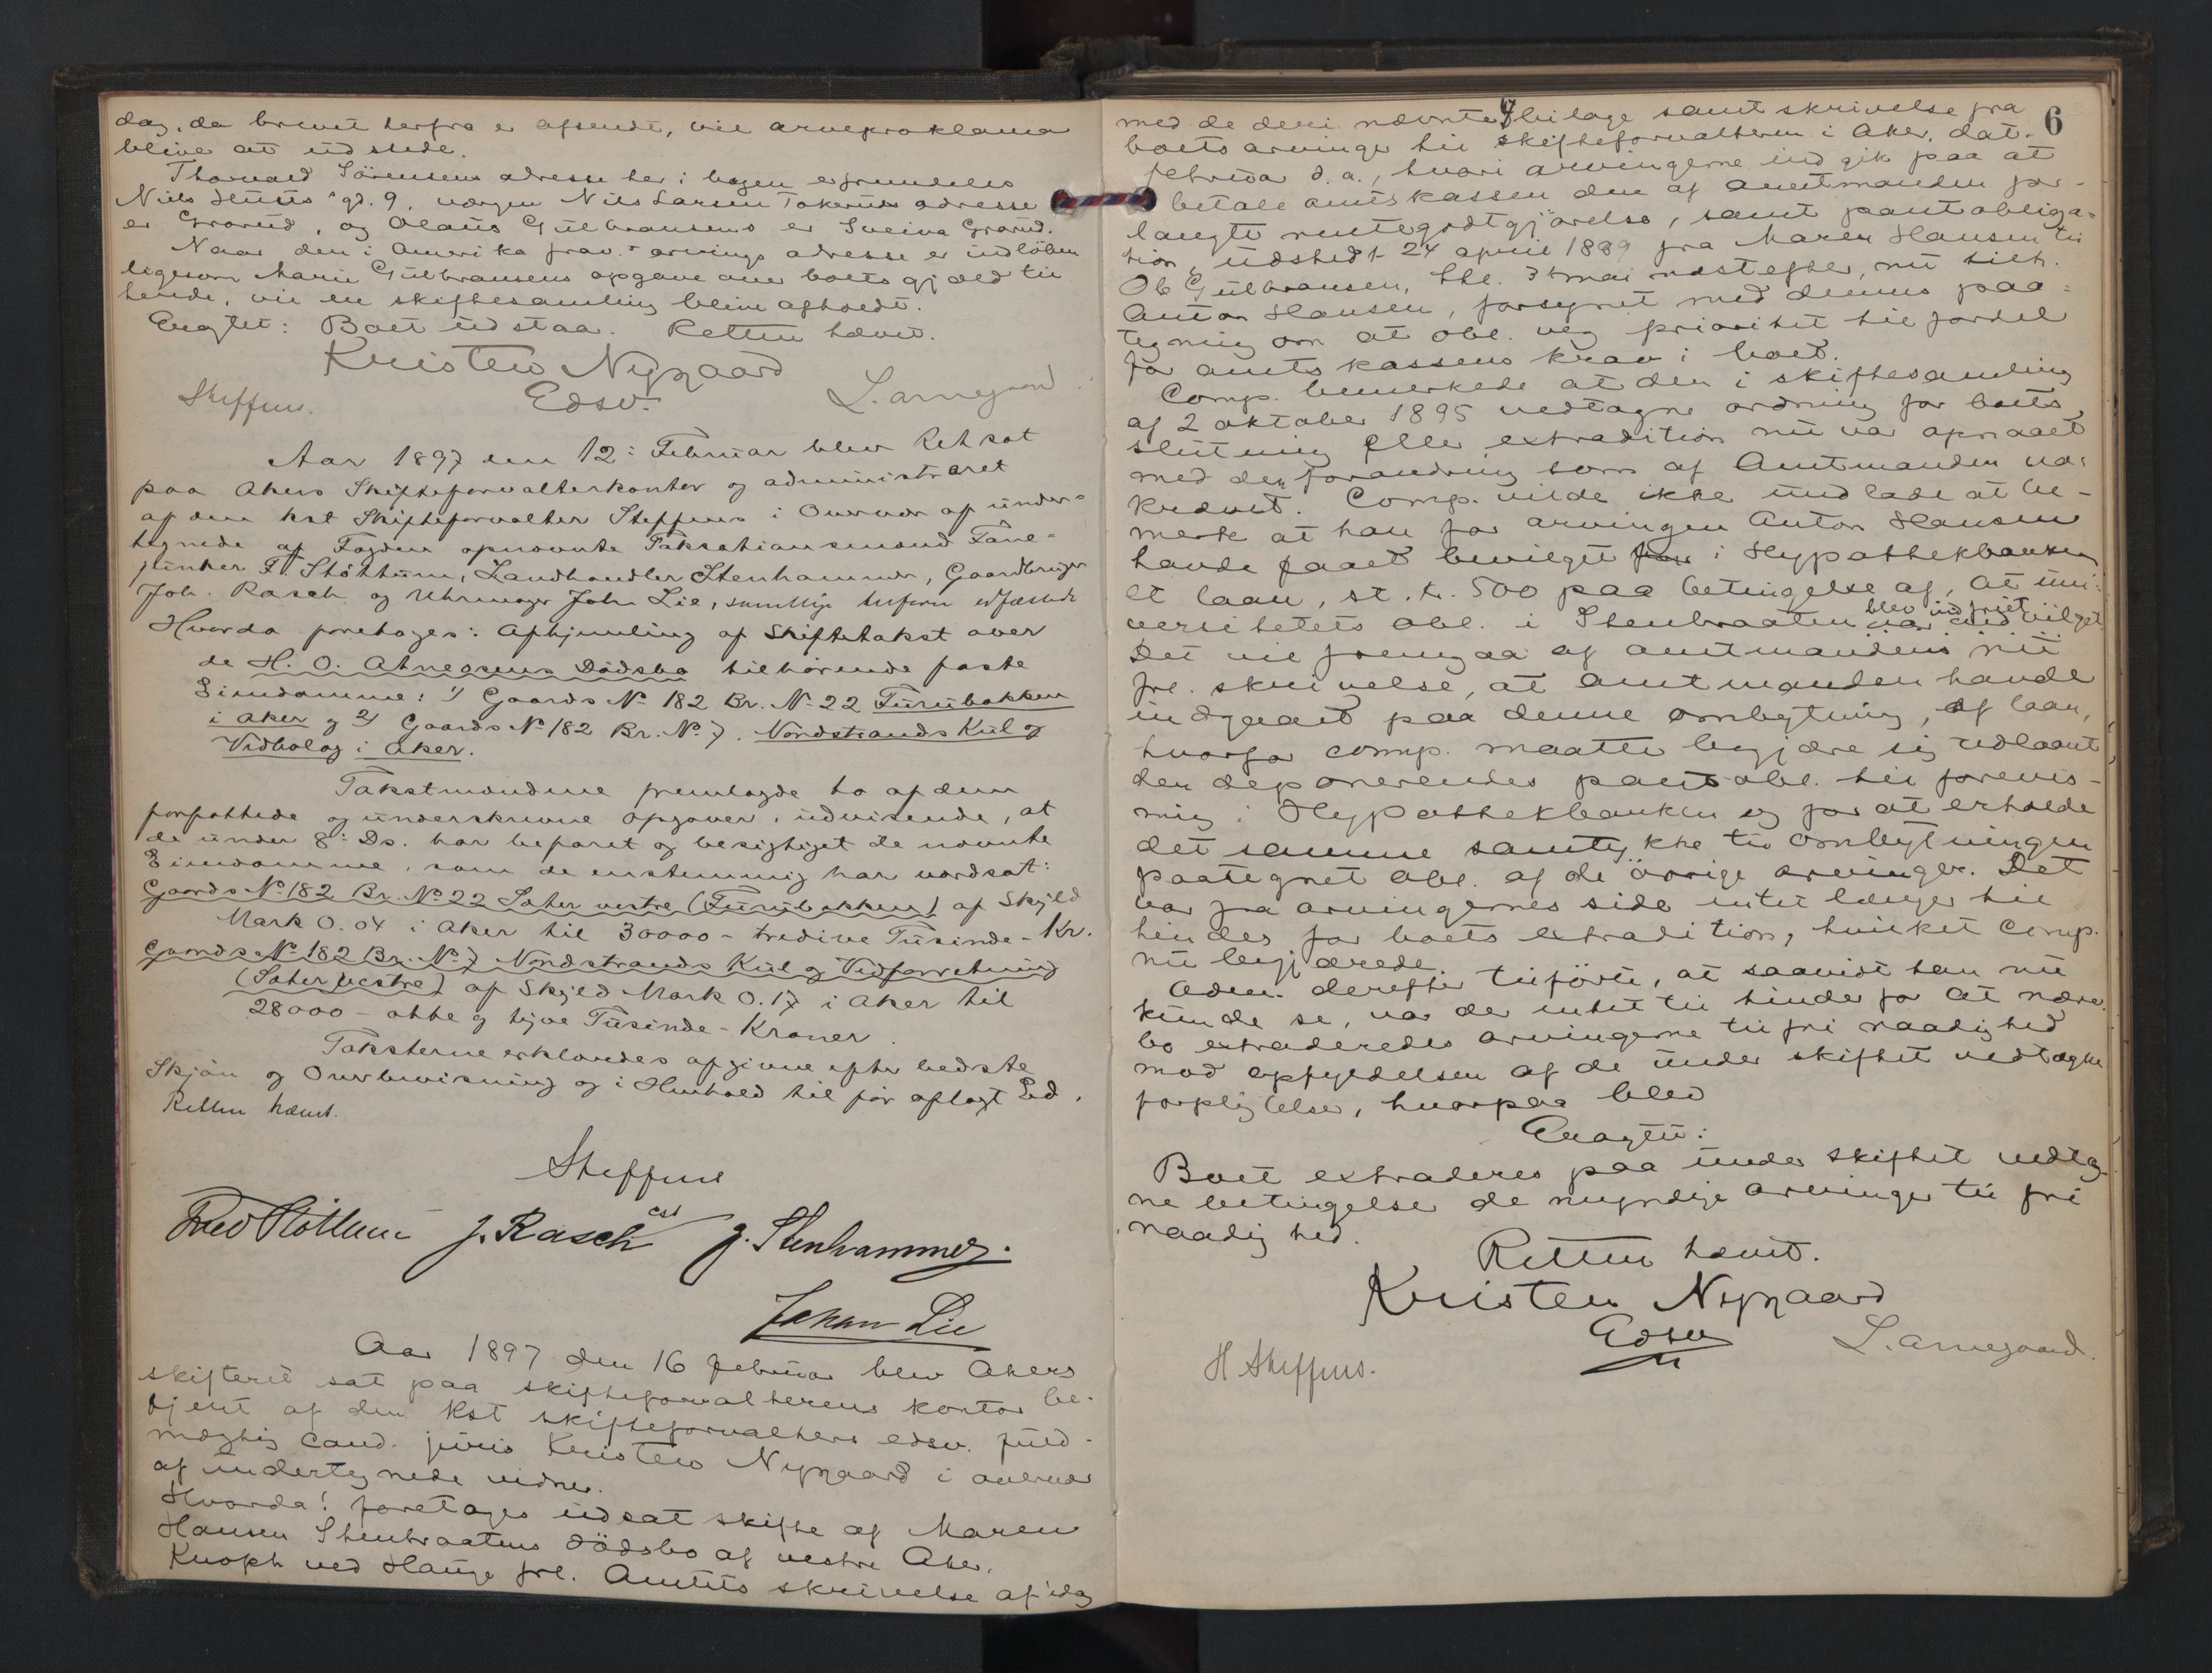 dag, da brevet herfra er afsendt, vil arveproklama
blive at udstede.
Thorvald Sörensens adresse her i byen er fremdeles
Niels Juuls gd. 9, værgen Nils Larsen Tokeruds adresse
er Grorud, og Olaus Gulbransens er Sveiva Grorud.
Naar den i Amerika frav. arvings adresse er indløben
ligesom Marie Gulbransens opgave over boets gjæld til
hende, vil en skiftesamling blive afholdt.
Eragtet: Boet udstaar. Retten hævet.
Kristen Nygaard
Steffens. Edsv. L. Arnegaard.
Aar 1897 den 12: Februar blev Ret sat
paa Akers Skifteforvalterkontor og administreret
af den kst Skifteforvalter Steffens i Overvær af under-
tegnede af Fogden opnævnte Taksationsmænd Fane-
junker F. Slöttum, Landhandler Stenhammer, Gaardbruger
Joh. Rasch og Uhrmager Joh. Lie, samtlige edfæstede
Hvorda foretoges: Afhjemling af Skiftetakst over
de H. O. Dödsbo tilhörende faste
Eiendomme: 1/ Gaards No 182 Br. No 22 Furubakken
i Aker og 2/ Gaards No 182 Br. No 7. Nordstrands Kul og
Vedbolag i Aker.
Takstmændene fremlagde to af dem
forfattede og underskrevne Opgaver, udvisende, at
de under 8: Ds. har befaret og besigtiget de nævnte
Eiendomme, som de enstemmig har værdsat:
Gaards No 182 Br. No 22 Sæter vestre (Furubakken) af Skyld
Mark 0.04 i Aker til 30000 - tredive Tusinde - Kr.
Gaards No 182 Br. No 7 Nordstrands Kul og Vedforretning
(Sæter vestre) af Skyld Mark 0.17 i Aker til
28000 - otte og tyve Tusinde - Kroner.
Taksterne erklæredes afgivne efter bedste
Skjön og Overbevisning og i Henhold til för aflagt Ed.
Retten hævet.
Steffens
cst
Fred Slöttum J. Rasch J. Stenhammer.
Johan Lie
Aar 1897 den 16 februar blev Akers
skifteret sat paa skifteforvalterens kontor be-
tjent af den kst skifteforvalters edsv. fuld-
mægtig cand. juris Kristen Nygaard i overvær
af undertegnede vidner.
Hvorda: foretoges udsat skifte af Maren
Hansen Stenbraatens dödsbo af vestre Aker.
Knoph ved Hauge frl. Amtets skrivelse af idag
6
med de deri nævnte 7 bilage samt skrivelse fra
boets arvinger til skifteforvalteren i Aker, dat.
februar d.a., hvori arvingerne indgik paa at
betale amtskassen den af amtmanden for-
langte rentegodtgjörelse, samt pantobliga-
tion, udstedt 24 april 1889 fra Maren Hansen til
Ole Gulbransen, thl. 3 mai næstefter, nu tilh.
Anton Hansen, forsynet med dennes paa-
tegning om at obl. veg prioritet til fordel
for amtskassens krav i boet.
Comp. bemerkede at den i skiftesamling
af 2 oktober 1895 vedtagne ordning for boets
slutning eller extradition nu var opnaaet
med den forandring som af Amtmanden var
krævet. Comp. vilde ikke undlade at be-
merke at han for arvingen Anton Hansen
havde faaet bevilget i Hypothekbanken
et laan, st. kr. 500 paa betingelse af, at uni-
versitetets obl. i Stenbraaten blev indfriet
Det vil fremgaa af amtmandens nu
frl. skrivelse, at amtmanden havde
indgaaet paa denne ombytning af laan,
hvorfor comp. maatte begjære sig udlaant
den deponerendes pantobl. til forevis-
ning i Hypothekbanken og for at erholde
det samme samtykke til ombytningen
paategnet obl. af de övrige arvinger. Det
var fra arvingernes side intet længer til
hinder for boets extradition, hvilket comp.
nu begjærede.
Adm. derefter tilförte, at saavidt han nu
kunde se, var der intet til hinder for at nærv.
bo extraderedes arvingerne til fri raadighed
mod opfyldelsen af de under skiftet vedtagne
forpligtelser, hvorpaa blev
Eragtet:
Boet extraderes paa under skiftet vedtag-
ne betingelser de myndige arvinger til fri
raadighed.
Retten hævet.
Kristen Nygaard
Edsv
H Steffens. L. Arnegaard.